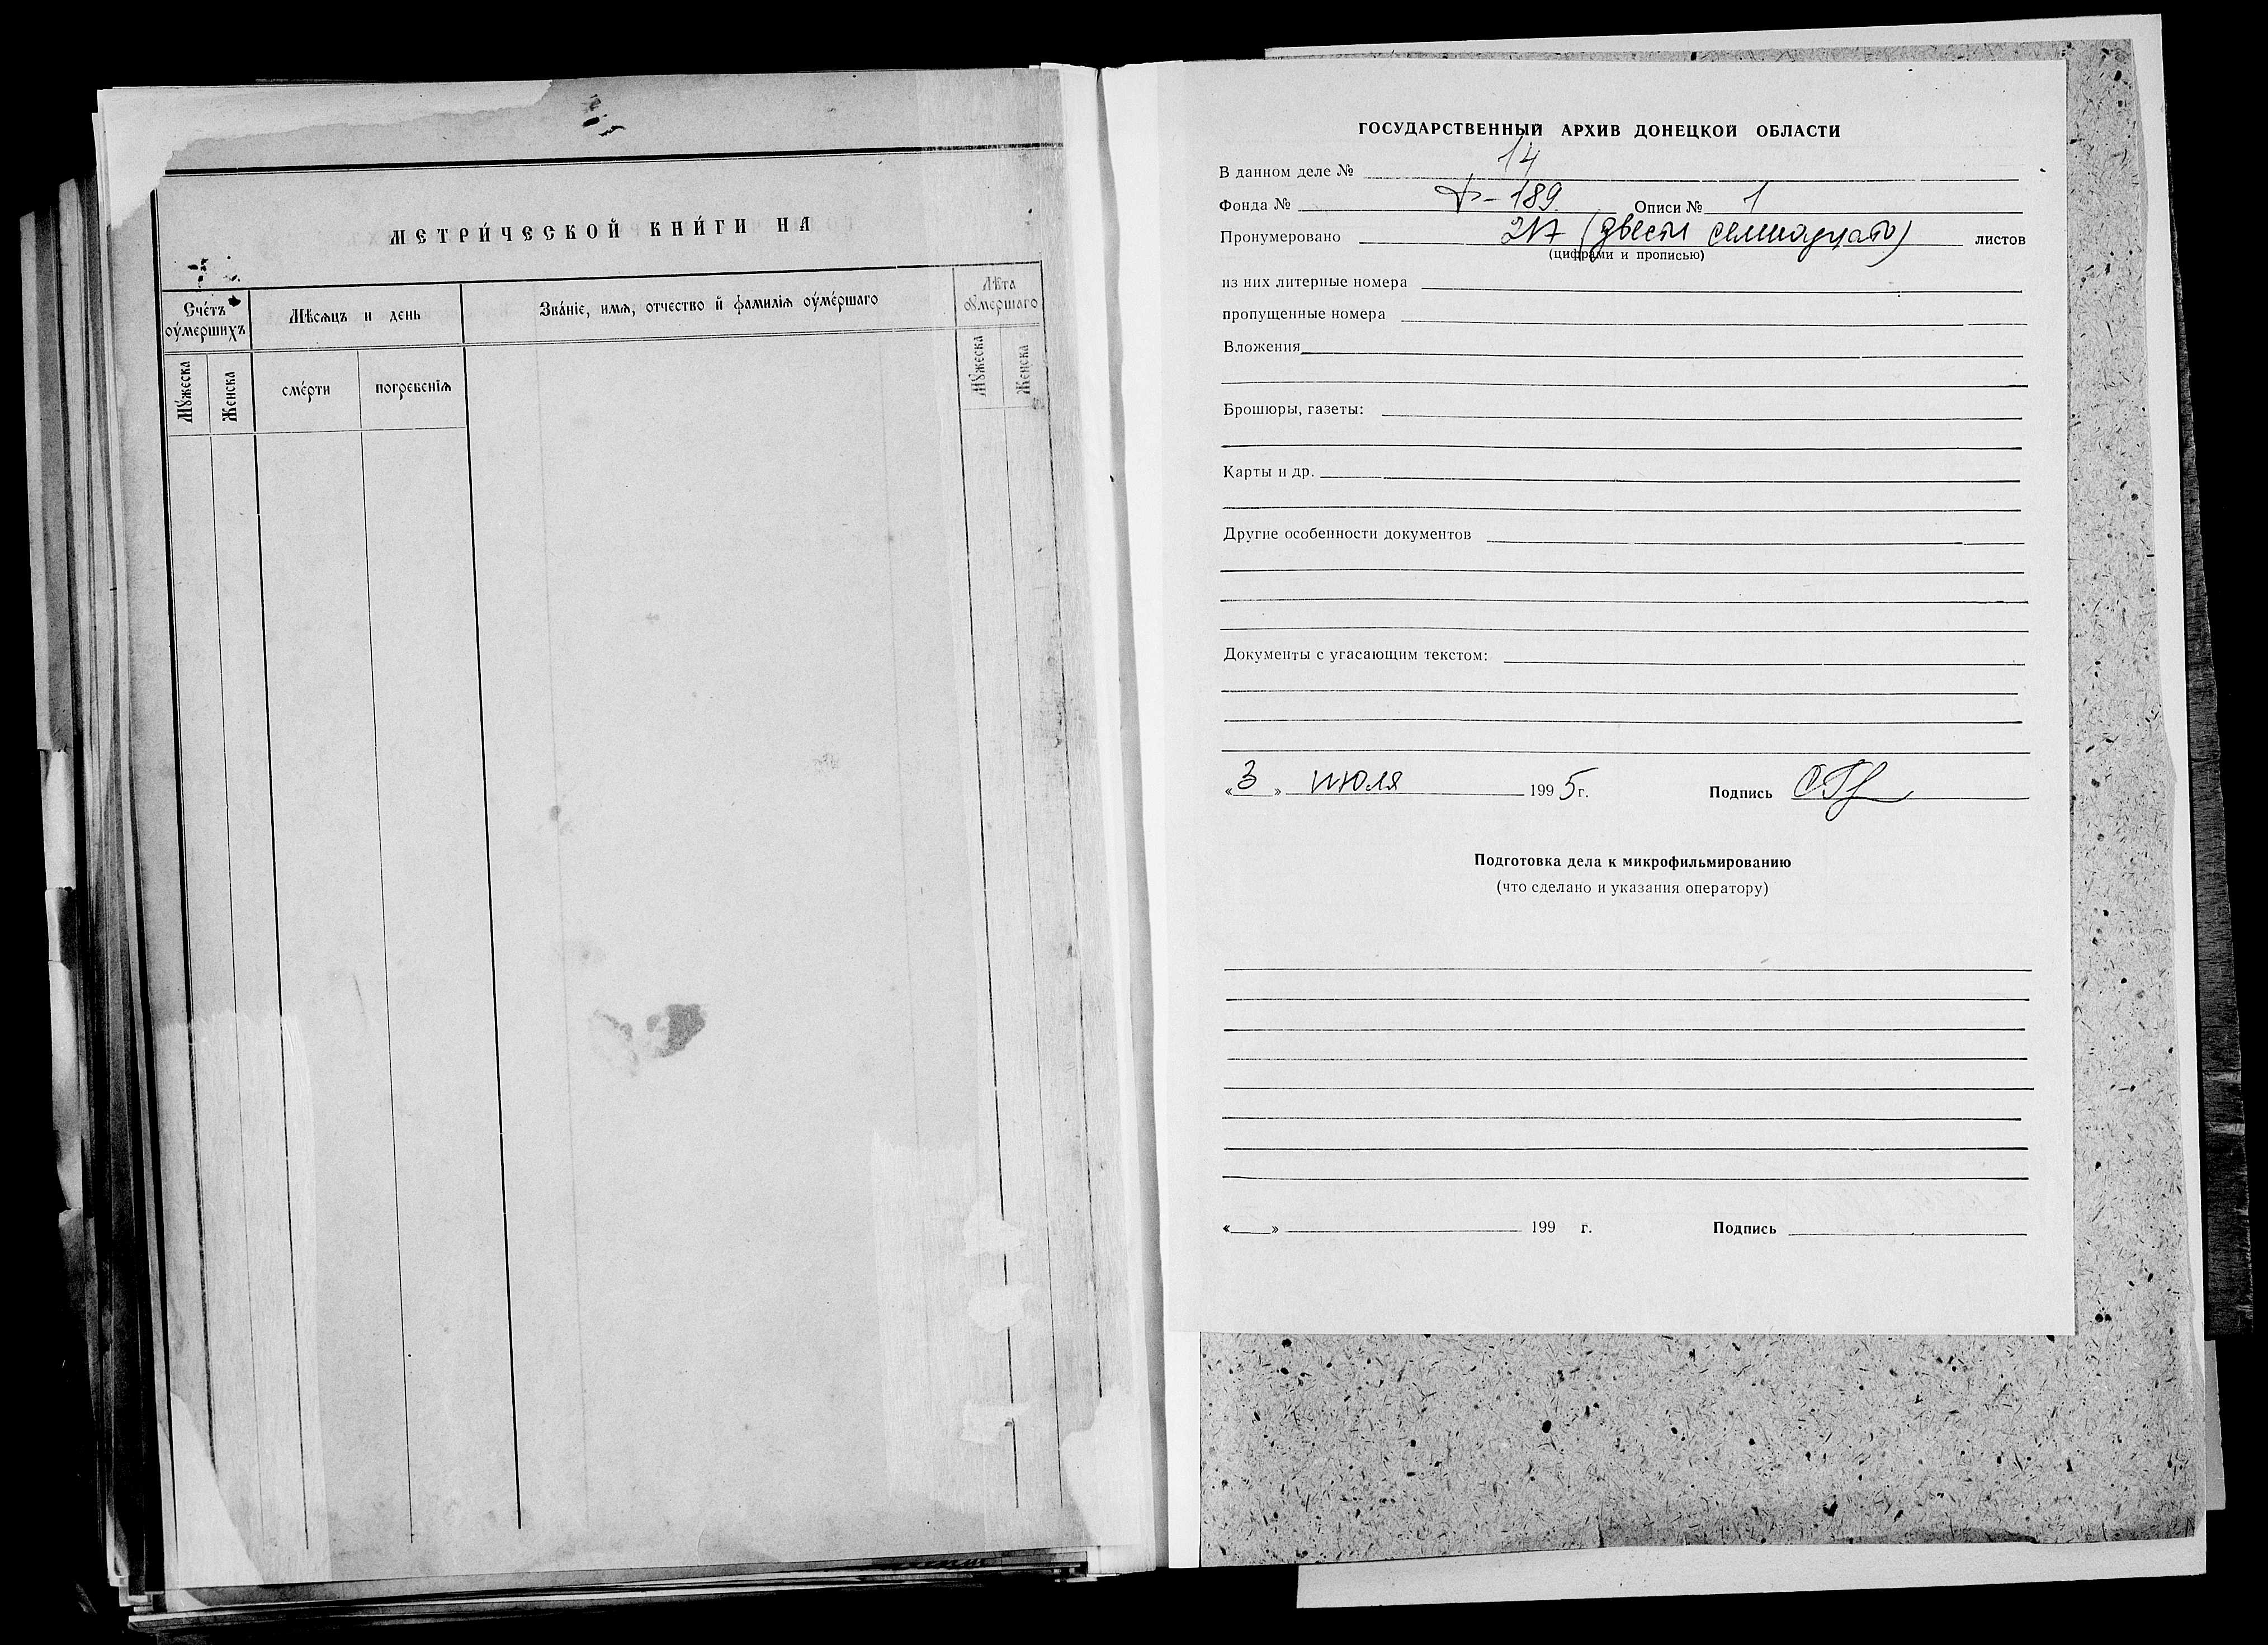 МЕТРИ́ЧЕСКОЙ КНИ́ГИ НА
Сче́тъ оу́мершихъ
Мѣсѧцъ и день
Зва́нїе, имѧ, отчество и҆ фамилїѧ оу́ме́ршаго
Лѣта оу́мершаго
Мꙋжеска
Женска
сме́рти
погребенїѧ
Мꙋжеска
Женска
ГОСУДАРСТВЕННЫЙ АРХИВ ДОНЕЦКОЙ ОБЛАСТИ
В данном деле № 14
Фонда № Ф-189 Описи № 1
Пронумеровано 217 (двести семнадцать) листов
(цифрами и прописью)
из них литерные номера
пропущенные номера
Вложения
Брошюры, газеты:
Карты и др.
Другие особенности документов
Документы с угасающим текстом:
«3» июля 1995 г. Подпись
Подготовка дела к микрофильмированию
(что сделано и указания оператору)
«____» 199 г. Подпись